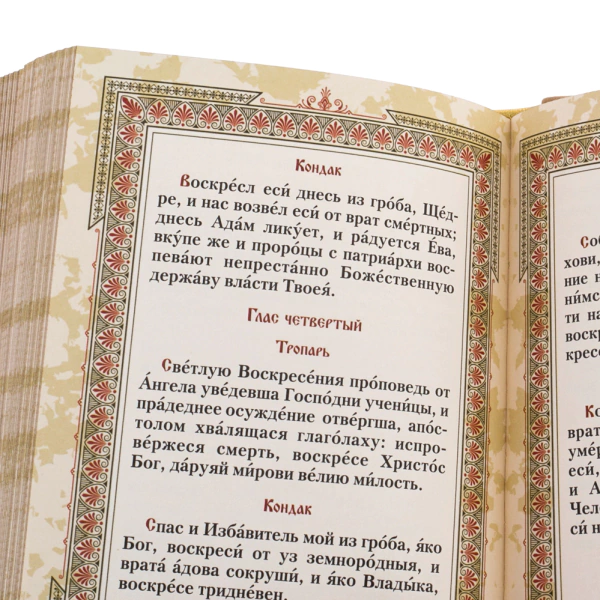 Кондак
Воскре́сл еси́ днесь из гро́ба, Ще́д-
ре, и нас возве́л еси́ от врат сме́ртных;
днесь Ада́м лику́ет, и ра́дуется Е́ва,
вку́пе же и проро́цы с патриа́рхи вос-
пева́ют непреста́нно Боже́ственную
держа́ву вла́сти Твоея́.
Глас четвертый
Тропарь
Све́тлую Воскресе́ния про́поведь от
А́нгела уве́девша Госпо́дни учени́цы, и
пра́деднее осужде́ние отве́ргша, апо́с-
толом хва́лящася глаго́лаху: испро-
ве́ржеся смерть, воскре́се Христо́с
Бог, да́руяй ми́рови ве́лию ми́лость.
Кондак
Спас и Изба́витель мой из гро́ба, я́ко
Бог, воскреси́ от уз земноро́дныя, и
врата́ а́дова сокруши́, и я́ко Влады́ка,
воскре́се тридне́вен.
Соб
хови,
ние н
ни́мс
ти на
воскр
кресе
Ко
врат
уме́р
еси́,
и А
Чело
си́ н